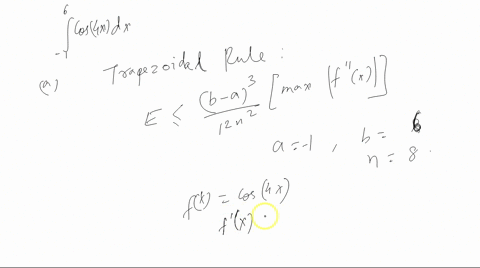 ∫₋₁⁶ cos(4x) dx
(a) Trapezoidal Rule :
E ≤ (b-a)³ / 12n² [max |f''(x)|]
a = -1 , b = 6
n = 8 .
f(x) = cos(4x)
f'(x)